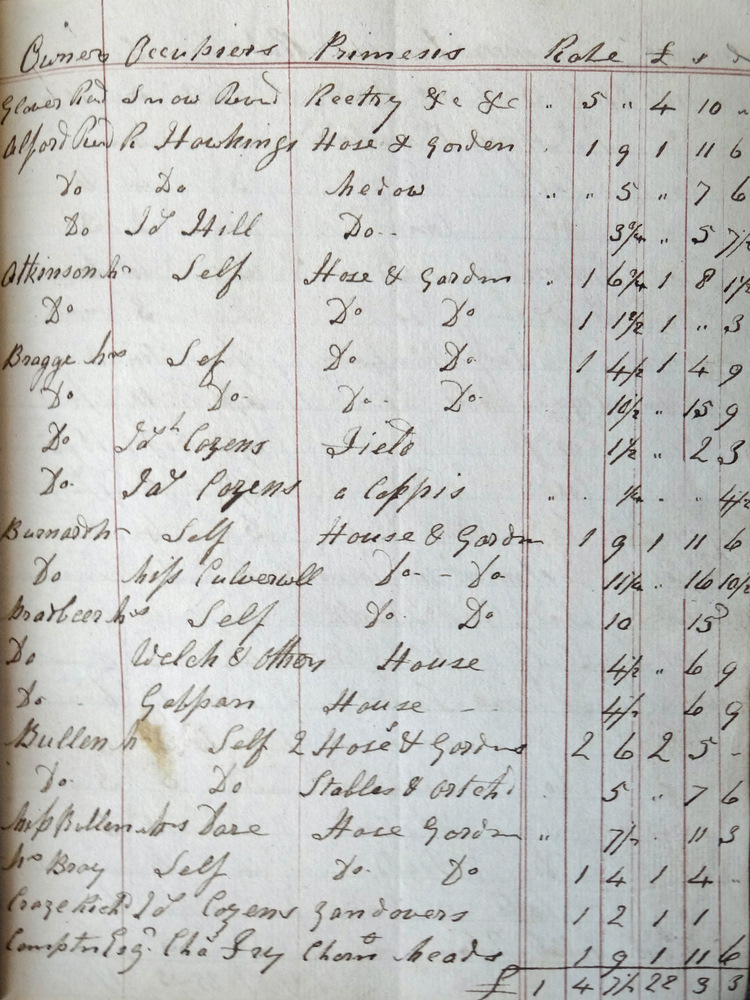 Owners Occupiers Primesis Rate £ s
Glover Revd Snow Revd Rectry &c &c " 5 " 4 10 "
Alford Revd R Hawkings Hose & Gorden 1 9 1 11 6
Do Do Medow " " 5 " 7 6
Do Jas Hill Do 3¾ " 5 7½
Atkinson Mr Self Hose & Gorden 1 6¾ 1 8 1½
Do Do Do 1 1½ 1 " 3
Bragge Mrs Sef Do Do 1 4½ 1 4 9
Do Do Do Do 10½ " 15 9
Do Cozens Field 1½ " 2 3
Do Jas Cozens a Coppis " ¼ " 4½
Barnard Mr Self House & Gorden 1 9 1 11 6
Do Miss Culverwell Do Do 11¼ " 16 10½
Bradbeer Mrs Self Do Do 10 15
Do Welch & others House 4½ " 6 9
Do House 4½ 6 9
Bullen Mr Self 2 Hoses & Gordens 2 6 2 5 -
Do Do Stables & Ortch 5 " 7 6
Miss Bullen Mrs Dare Hose Gorden " 7½ 11 3
Mrs Bray Self Do Do 1 4 1 4 -
Craze Richd Jas Cozens Zandovers 1 2 1 1
Compton Esqr Chas Fry heads 1 9 1 11 6
£ 1 4 7½ 22 3 3